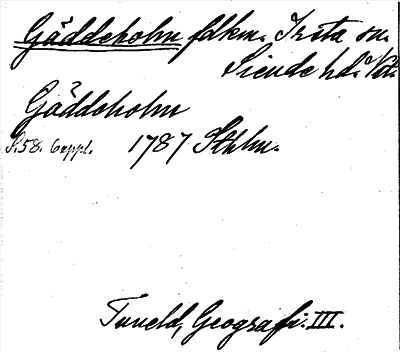 Gäddeholm fdkm. Irsta sn.
Siende hd. Vstm.
Gäddoholm
S. 58. 6 uppl. 1787 Sthlm.
Tuneld, Geografi. III.